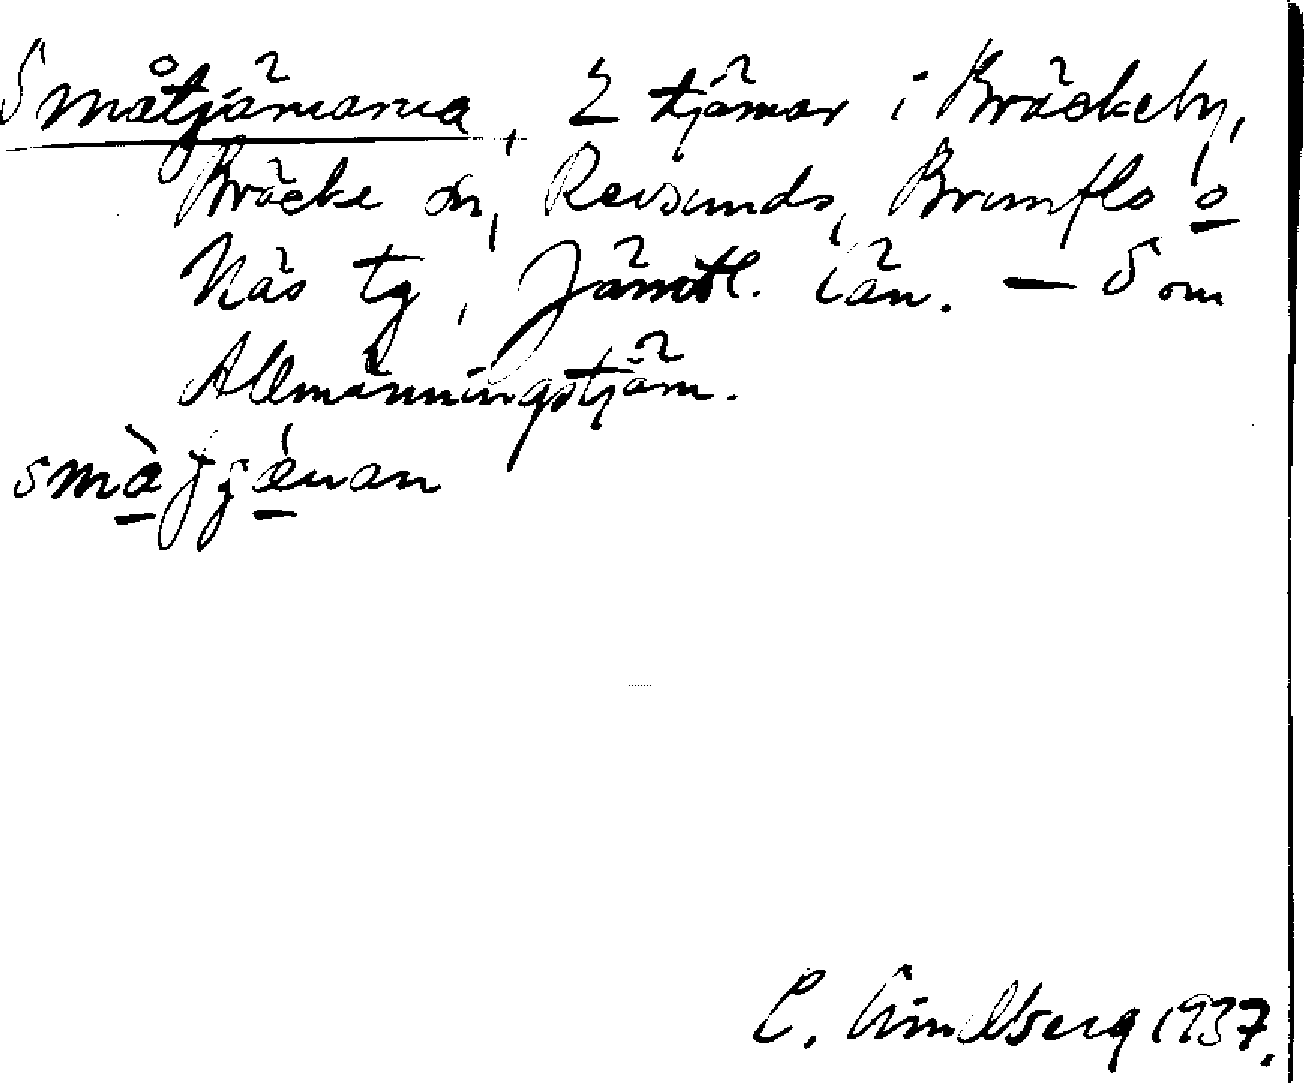 Småtjärnarna, 2 tjärnar i Bräckeby,
Bräcke sn, Revsunds, Brunflo o
Näs tg, Jämtl. län. — Som
Allmänningstjärn.
C. Lindberg 1937.